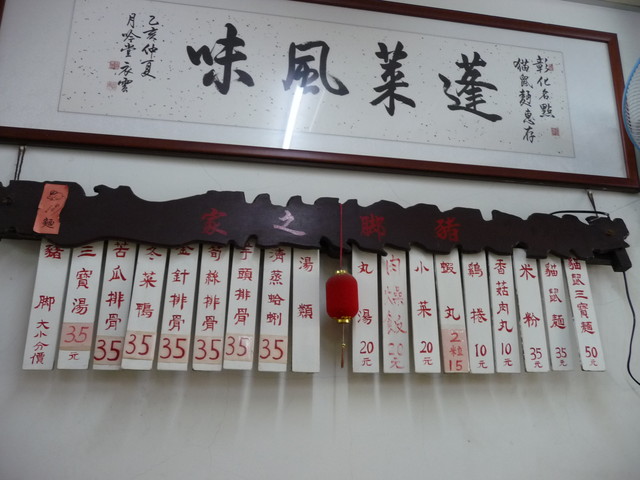 彰化名點
貓鼠麵惠存
蓬菜風味
乙亥仲夏
月吟堂
豬腳之家
貓鼠三寶麵 50元
貓鼠麵 35元
米粉 35元
香菇肉丸 10元
鷄捲 10元
蝦丸 2粒 15
小菜 20元
肉燥飯 20元
丸湯 20元
湯類
清蒸蛤蜊 35
芋頭排骨 35
筍絲排骨 35
金針排骨 35
冬菜鴨 35
苦瓜排骨 35
三寶湯 35元
豬脚 大小分價
麵